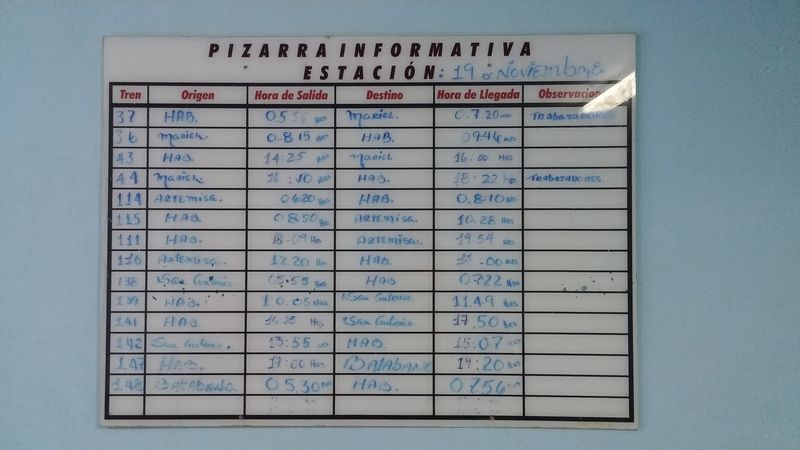 PIZARRA INFORMATIVA
ESTACIÓN: 19 d Noviembre
Tren Origen Hora de Salida Destino Hora de Llegada Observacion
37 HAB. Hrs Mariel. 0.7 20 Hrs TRABAJADORES
36 Mariel. 0.8 15 Hrs HAB. 0946 Hrs
43 HAB. 14:25 Hrs Mariel 16:00 Hrs
44 Mariel :10 Hrs HAB. 18:22 Hrs TRABAJADORES.
114 ARTEMISA. 0620 Hrs HAB. 0.8:10 Hrs
115 HAB. 0850 Hrs ARTEMISA. 10.28 Hrs
111 HAB. 18:09 Hrs ARTEMISA. 19:54 Hrs
116 Artemisa. 12.20 Hrs HAB. :00 Hrs
138 San Antonio 05:55 Hrs HAB 0722 Hrs
139 HAB. 10.05 Hrs San Antonio 1149 Hrs
141 HAB. Hrs San Antonio 17.50 Hrs
142 San Antonio. 13:55 Hrs HAB. 15:07 Hrs
147 HAB. 17:00 Hrs BATABANO 19:20 Hrs
148 BATABANO. 05.30 Hrs HAB. 0756 Hrs